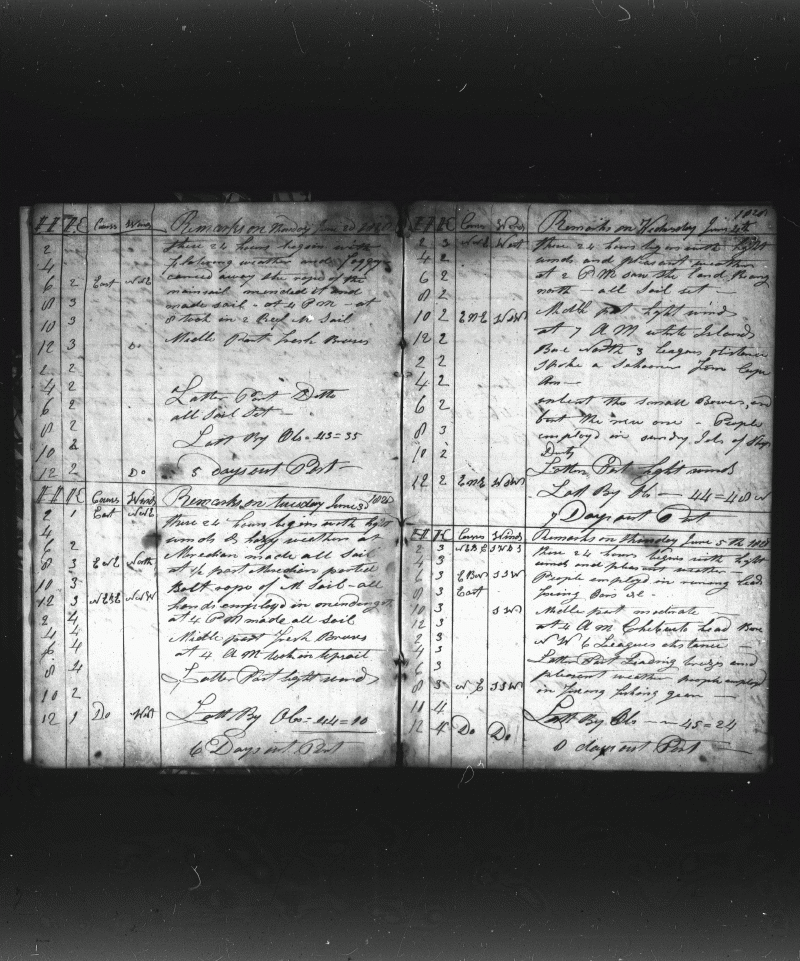 H H H K Courses Winds Remarks on Monday June 2d 1828
2 these 24 hours begins with
4 blowing weather and foggy
6 2 East NNE carried away the rope of the
8 3 mainsail mended it and
10 3 made sail - at 4 PM - at
8 took in 2 Reef M Sail
12 3 Do Middle Part fresh Breeses
2 2
4 2 Latter Part Ditto
6 2 all Sail Set -
8 2
10 2 Latt By Ob - 43=35
12 2 Do 5 days out Port -
H H H K Courses Winds Remarks on tuesday June 3d 1828
2 1 East NNE these 24 hours begins with light
4 winds & hazy weather at
6 2 Meredian made all Sail
8 3 ENE North at ½ past Meredian parted
10 3 Bolt rope of M Sail - all
12 3 NEBE NNW hands employd in mending it
2 4 at 4 PM made all sail
4 4 Middle part fresh Breeses
6 4 at 4 AM took in topsail
8 4 Latter Part light winds
10 2
12 1 Do West Latt By Obs - 44=10
6 Days out Port
H H H K Courses Winds Remarks on Wednesday June 4th 1828
2 3 West these 24 hours begins with light
4 2 winds and plesent weather
6 2 at 2 P M saw the land Bearing
8 2 north - all Sail set -
10 2 ENE WSW Middle part light winds
12 2 at 7 A M white Islands
2 2 Bore North 3 leagues distance
4 2 spoke a schooner from Cape
Ann -
6 2 unbent the small Bower, and
8 3 bent the new one - People
employd in sundry Jobs of Ships
10 2 Duty
12 2 ENE WSW Latter Part light winds
Latt By Obs - 44=48 N
7 Days out Port
H H H K Courses Winds Remarks on thursday June 5th 1828
2 3 NEBE these 24 hours begins with light
4 3 winds and plesent weather
6 3 EBN SSW People employd in running leads
8 3 East fixing &c -
10 3 SSW Middle part moderate -
12 3 at 4 AM head Bore
2 3 NW 6 Leagues distance -
4 3 Latter Part Leading breezes and
6 3 plesent weather people employd
8 3 NE SSW in fixing fishing gear -
10 4 Latt By Obs - 45=24
12 4 Do Do
8 days out Port -